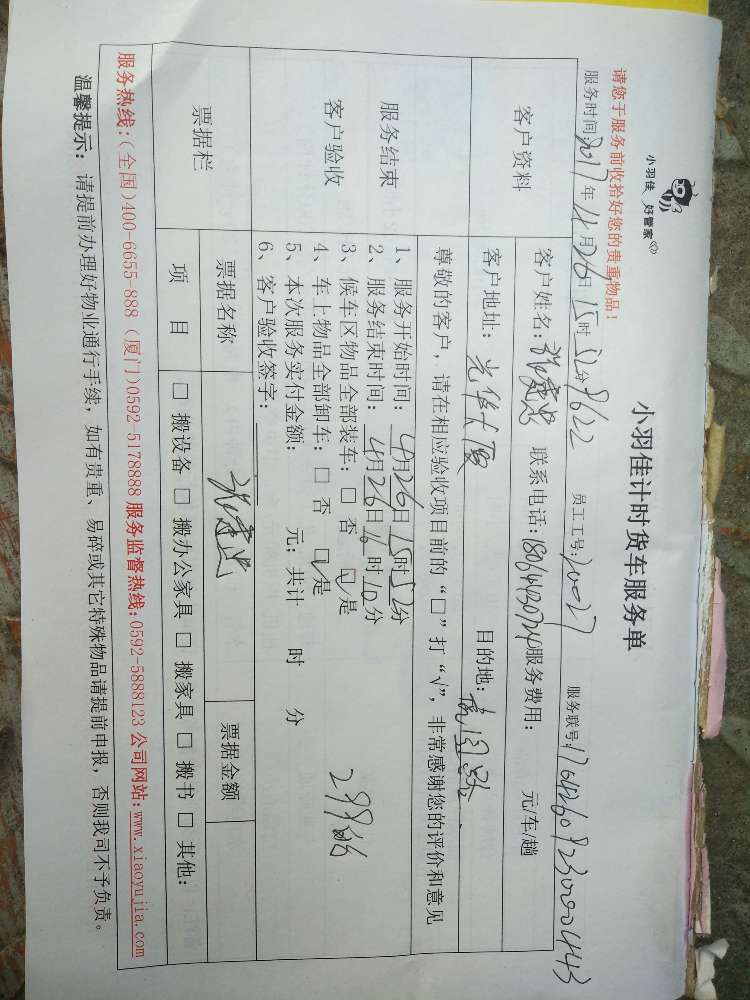 小羽佳 好管家
小羽佳计时货车服务单
请您于服务前收拾好您的贵重物品!
服务时间:2017年4月26日15时52分 员工工号:20027 服务联号:
客户资料
客户姓名: 联系电话:18064430740 服务费用: 元/车/趟
客户地址:光华大厦 目的地:
服务结束
客户验收
尊敬的客户,请在相应验收项目前的“□”打“√”,非常感谢您的评价和意见
1、服务开始时间:4月26日15时52分
2、服务结束时间:4月26日16时10分
3、候车区物品全部装车:□ 否 ☑是
4、车上物品全部卸车:□ 否 ☑是
5、本次服务实付金额: 元;共计 时 分
6、客户验收签字:
票据栏
票据名称 票据金额
项 目 □ 搬设备 □ 搬办公家具 □ 搬家具 □ 搬书 □ 其他:
服务热线:(全国)400-6655-888 (厦门)0592-5178888 服务监督热线:0592-5888123 公司网站:www.xiaoyujia.com
温馨提示:请提前办理好物业通行手续,如有贵重、易碎或其它特殊物品请提前申报,否则我司不予负责。